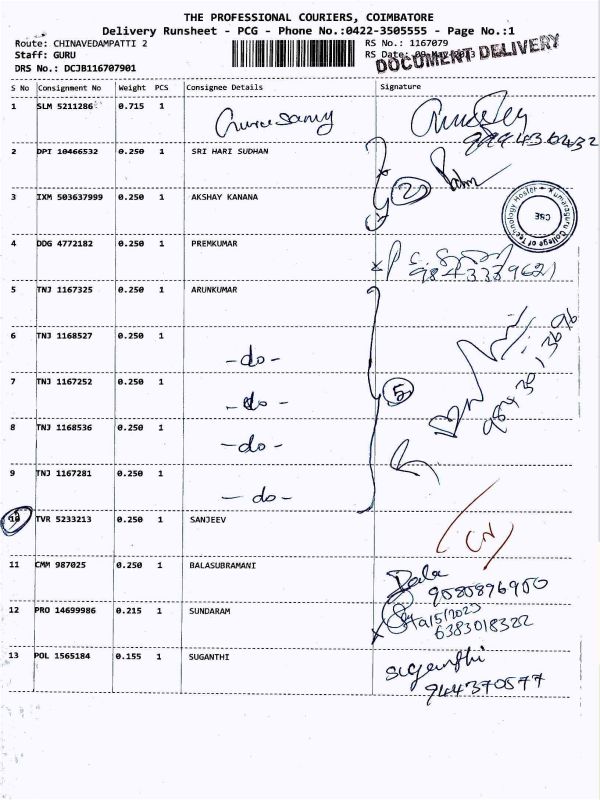 THE PROFESSIONAL COURIERS, COIMBATORE
Delivery Runsheet - PCG - Phone No.:0422-3505555 - Page No.:1
Route: CHINAVEDAMPATTI 2
RS No.: 1167079
Staff: GURU
RS Date: 09-May-2023
DOCUMENT DELIVERY
DRS No.: DCJB116707901
S No Consignment No Weight PCS Consignee Details Signature
1 SLM 5211286 0.715 1 Gurusamy
2 DPI 10466532 0.250 1 SRI HARI SUDHAN
3 IXM 503637999 0.250 1 AKSHAY KANANA
2
Kumaraguru College of Technology Hostel
CSE
4 DDG 4772182 0.250 1 PREMKUMAR
9843339621
5 TNJ 1167325 0.250 1 ARUNKUMAR
6 TNJ 1168527 0.250 1 -do-
7 TNJ 1167252 0.250 1 -do-
5
8 TNJ 1168536 0.250 1 -do-
9 TNJ 1167281 0.250 1 -do-
10 TVR 5233213 0.250 1 SANJEEV
11 CMM 987025 0.250 1 BALASUBRAMANI
Bala
9080896900
12 PRO 14699986 0.215 1 SUNDARAM
9/5/2023
6383018322
13 POL 1565184 0.155 1 SUGANTHI
suganthi
944370577